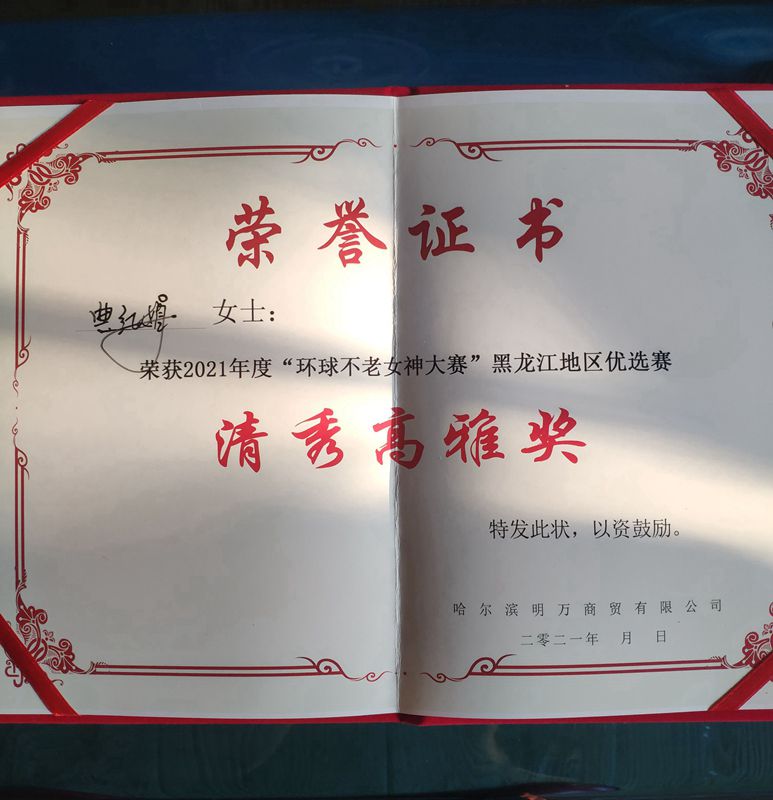 荣誉证书
女士：
荣获2021年度“环球不老女神大赛”黑龙江地区优选赛
清秀高雅奖
特发此状，以资鼓励。
哈尔滨明万商贸有限公司
二零二一年 月 日